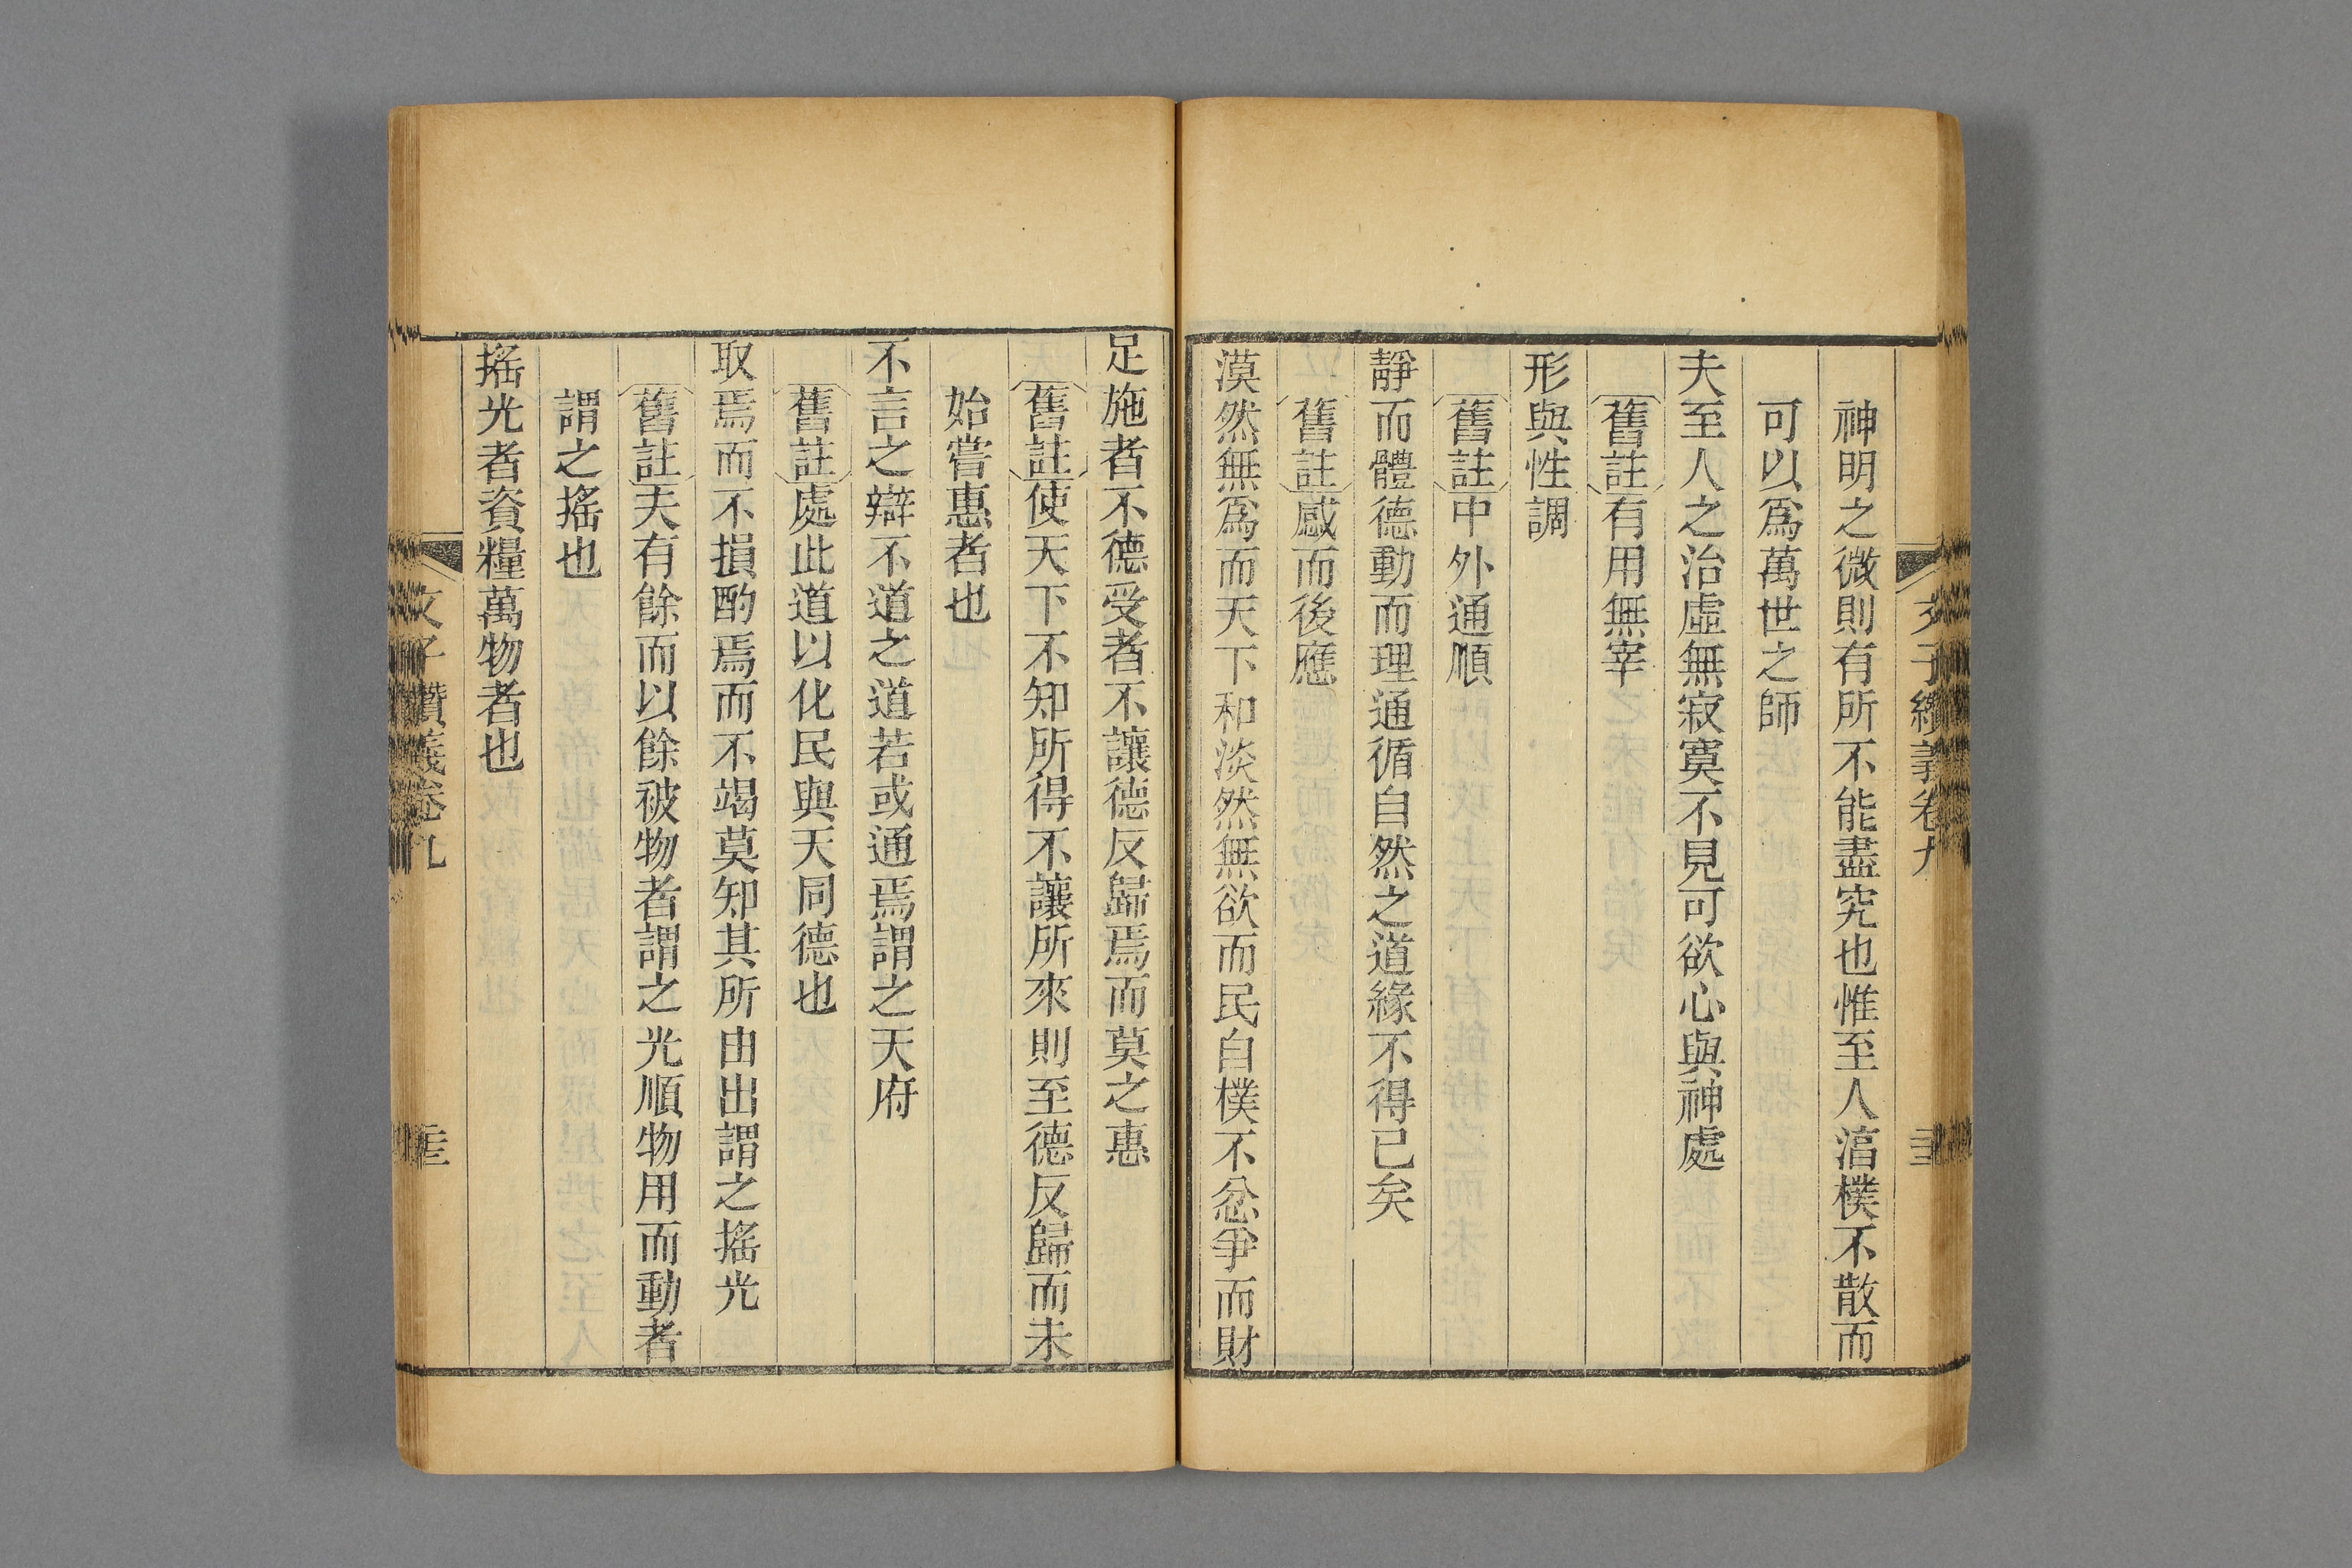 神明之微則有所不能盡究也惟至人湻樸不散而
可以爲萬世之師
夫至人之治虛無寂寞不見可欲心與神處
舊註有用無宰
形與性調
舊註中外通順
靜而體德動而理通循自然之道緣不得已矣
舊註感而後應
漠然無爲而天下和淡然無欲而民自樸不忿爭而財
足施者不德受者不讓德反歸焉而莫之惠
舊註使天下不知所得不讓所來則至德反歸而未
始嘗惠者也
不言之辯不道之道若或通焉謂之天府
舊註處此道以化民與天同德也
取焉而不損酌焉而不竭莫知其所由出謂之搖光
舊註夫有餘而以餘被物者謂之光順物用而動者
謂之搖也
搖光者資糧萬物者也
文子纘義卷九